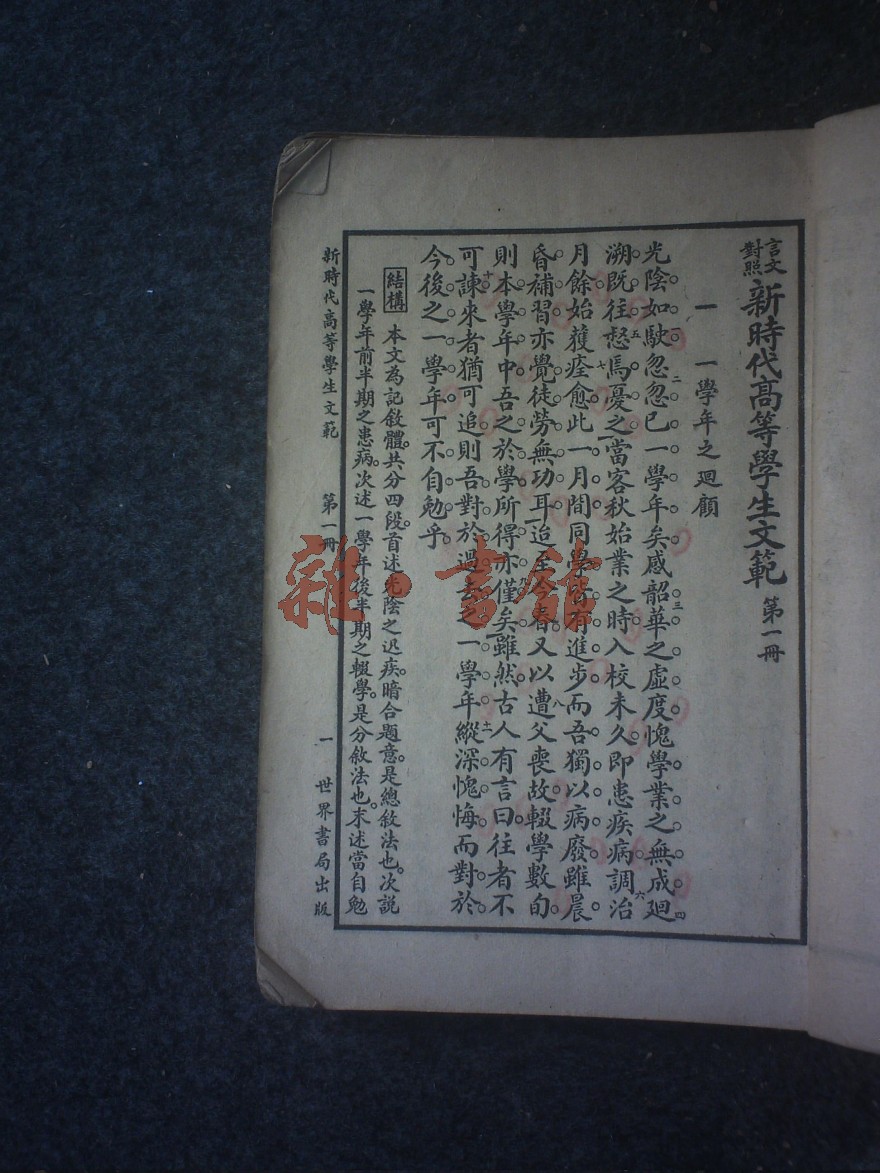 言文對照 新時代高等學生文範 第一冊
一 一學年之廻顧
光陰如駛。忽忽已一學年矣。感韶華之虛度。愧學業之無成。廻
溯既往。惄焉憂之。當客秋始業之時。入校未久。即患疾病。調治
月餘。始獲痊愈。此一月間。同學皆有進步。而吾獨以病廢。雖晨
昏補習。亦覺徒勞無功耳。迨至今春。又以遭父喪故。輟學數旬。
則本學年中。吾之於學。所得亦僅矣。雖然。古人有言曰。往者不
可諫。來者猶可追。則吾對於過去之一學年。縱深愧悔。而對於
今後之一學年。可不自勉乎。
結構 本文為記敘體。共分四段。首述光陰之迅疾。暗合題意。是總敘法也。次說
一學年前半期之患病。次述一學年後半期之輟學。是分敘法也。末述當自勉
新時代高等學生文範 第一冊 一 世界書局出版
雜·書館